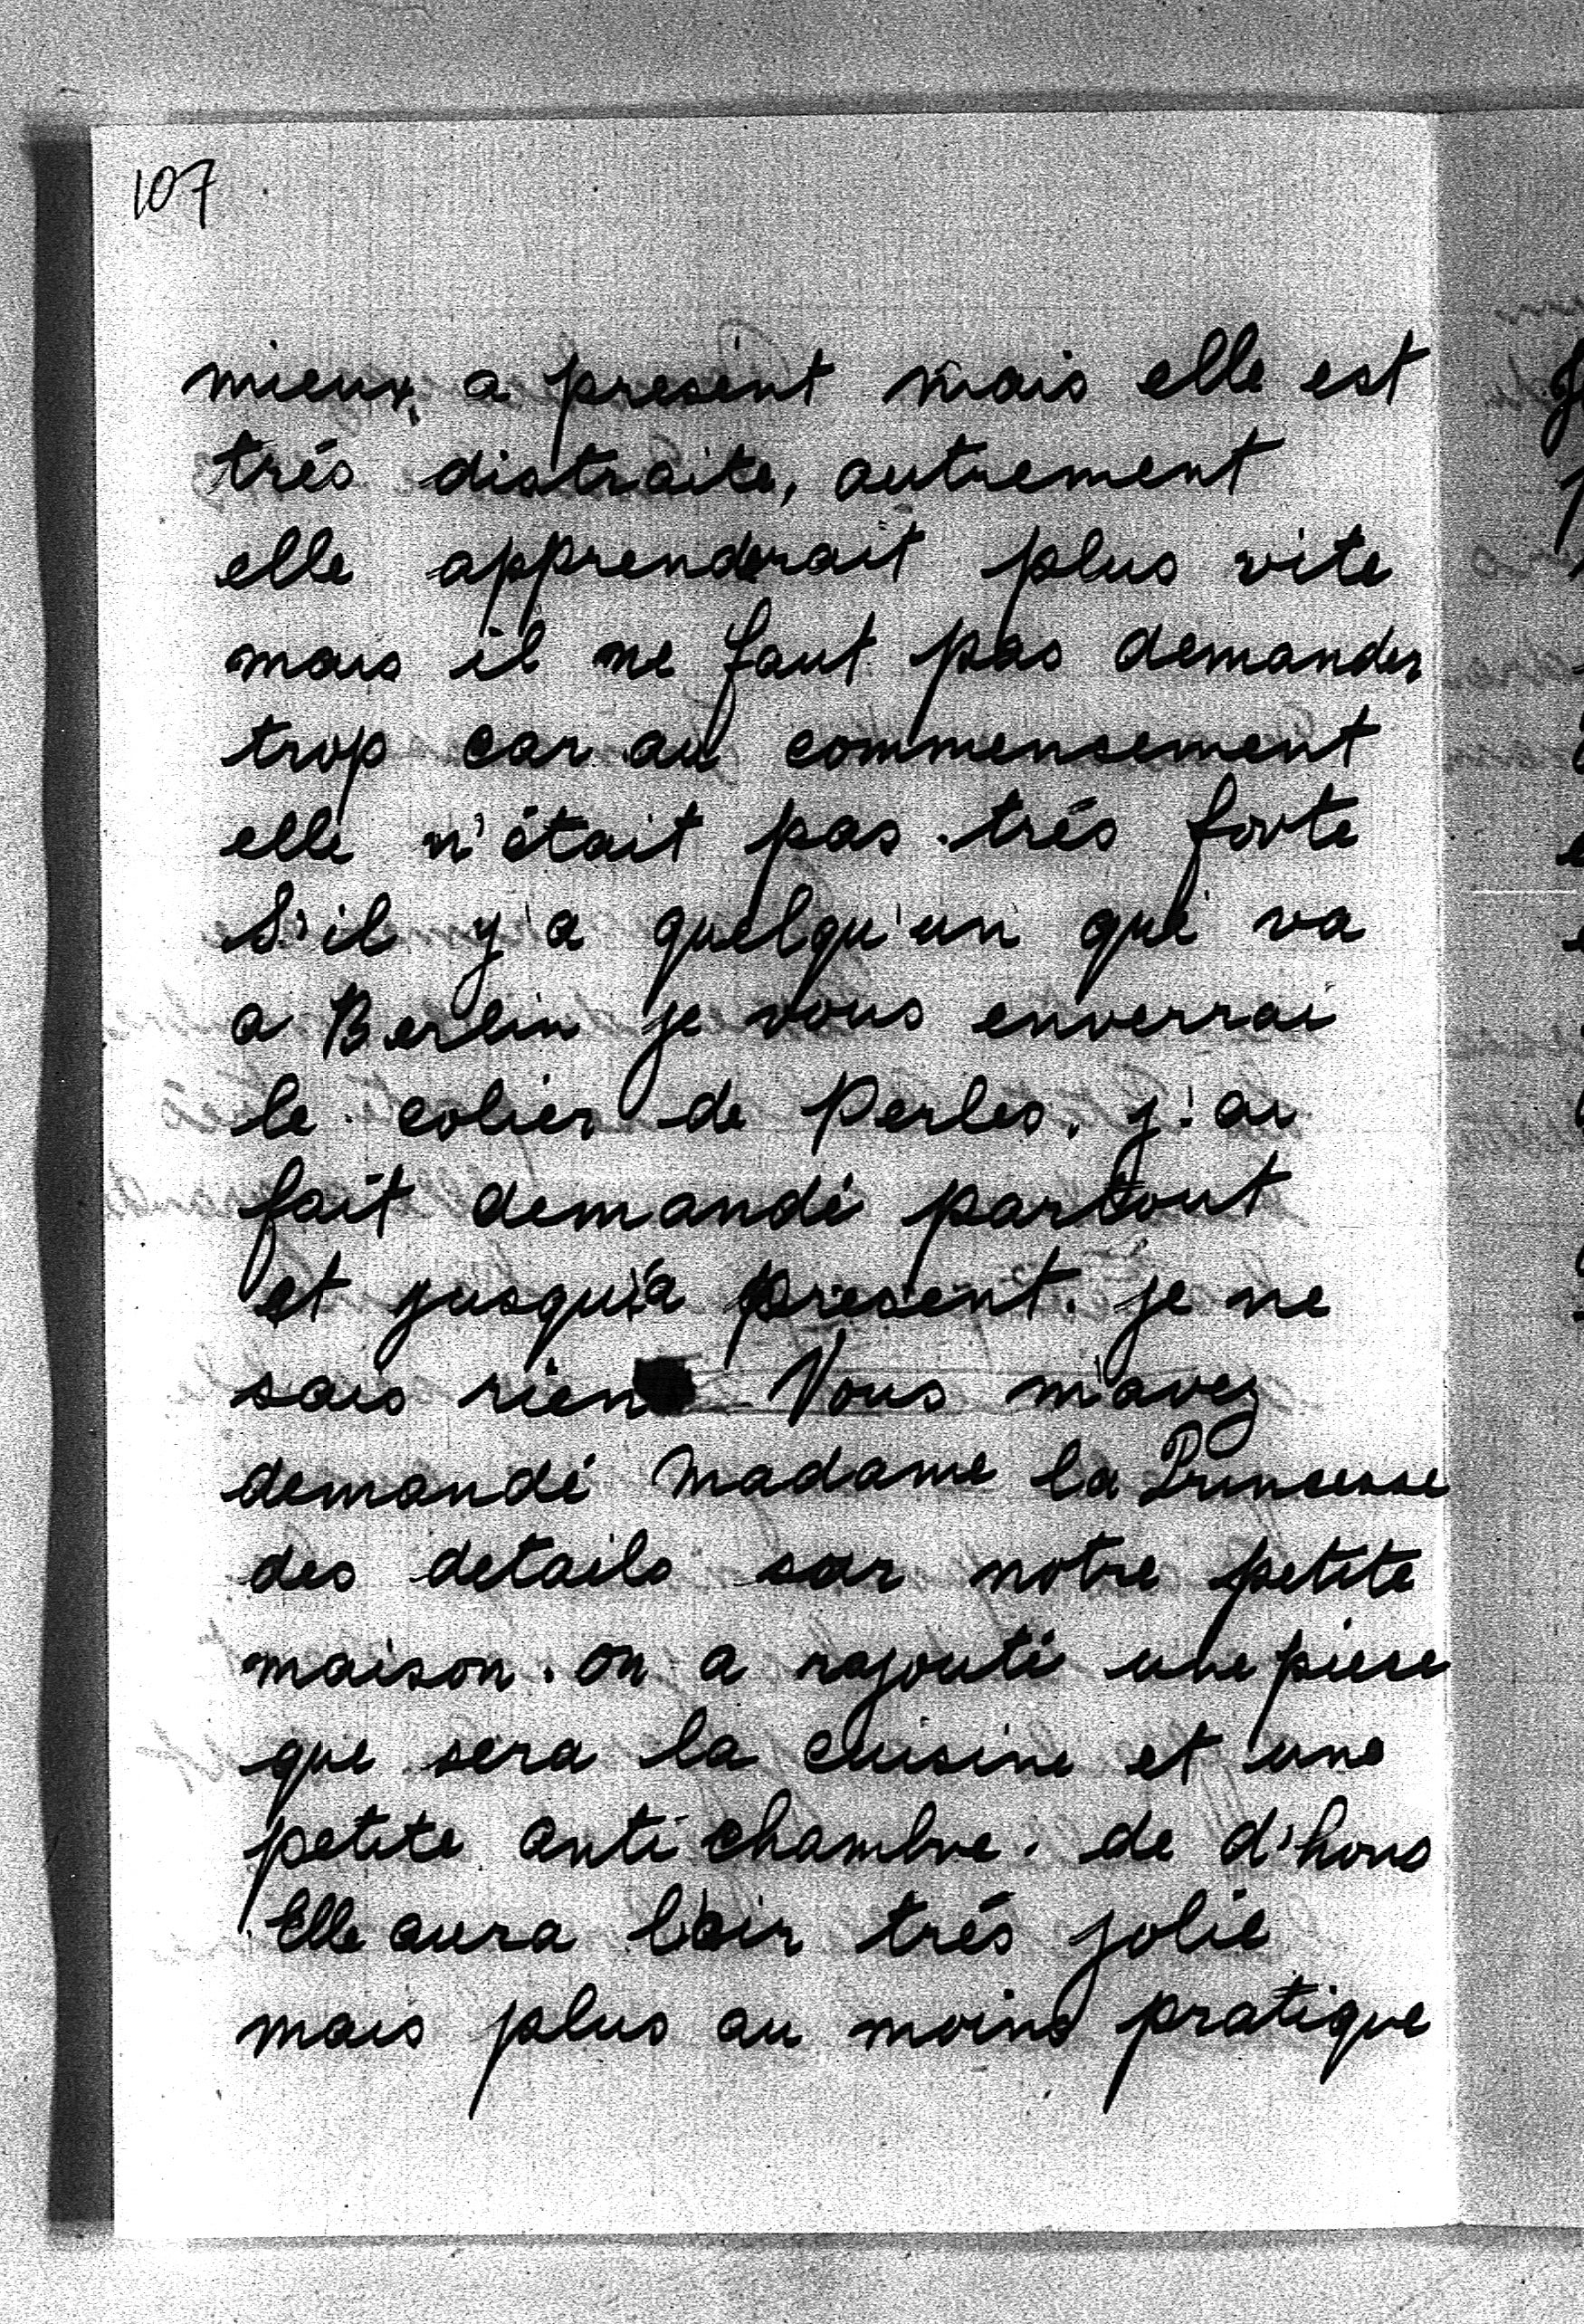 107
mieux, a présent mais elle est
trés distraite, autrement
elle apprenderait plus vite
mais il ne faut pas demander
trop car au commensement
elle n'était pas trés forte
S'il y'a quelqu'un qui va
a Berlin je vous enverrai
le colier de Perles. j'ai
fait demandé partout
et jusqu'a present. je ne
sais rien Vous m'avez
demandé Madame la Princesse
des details sur notre petite
maison. on a rajouté une piese
que sera la cuisine et une
petite anti chambre. de d'hors
Elle aura l'air trés jolie
mais plus au moins pratique